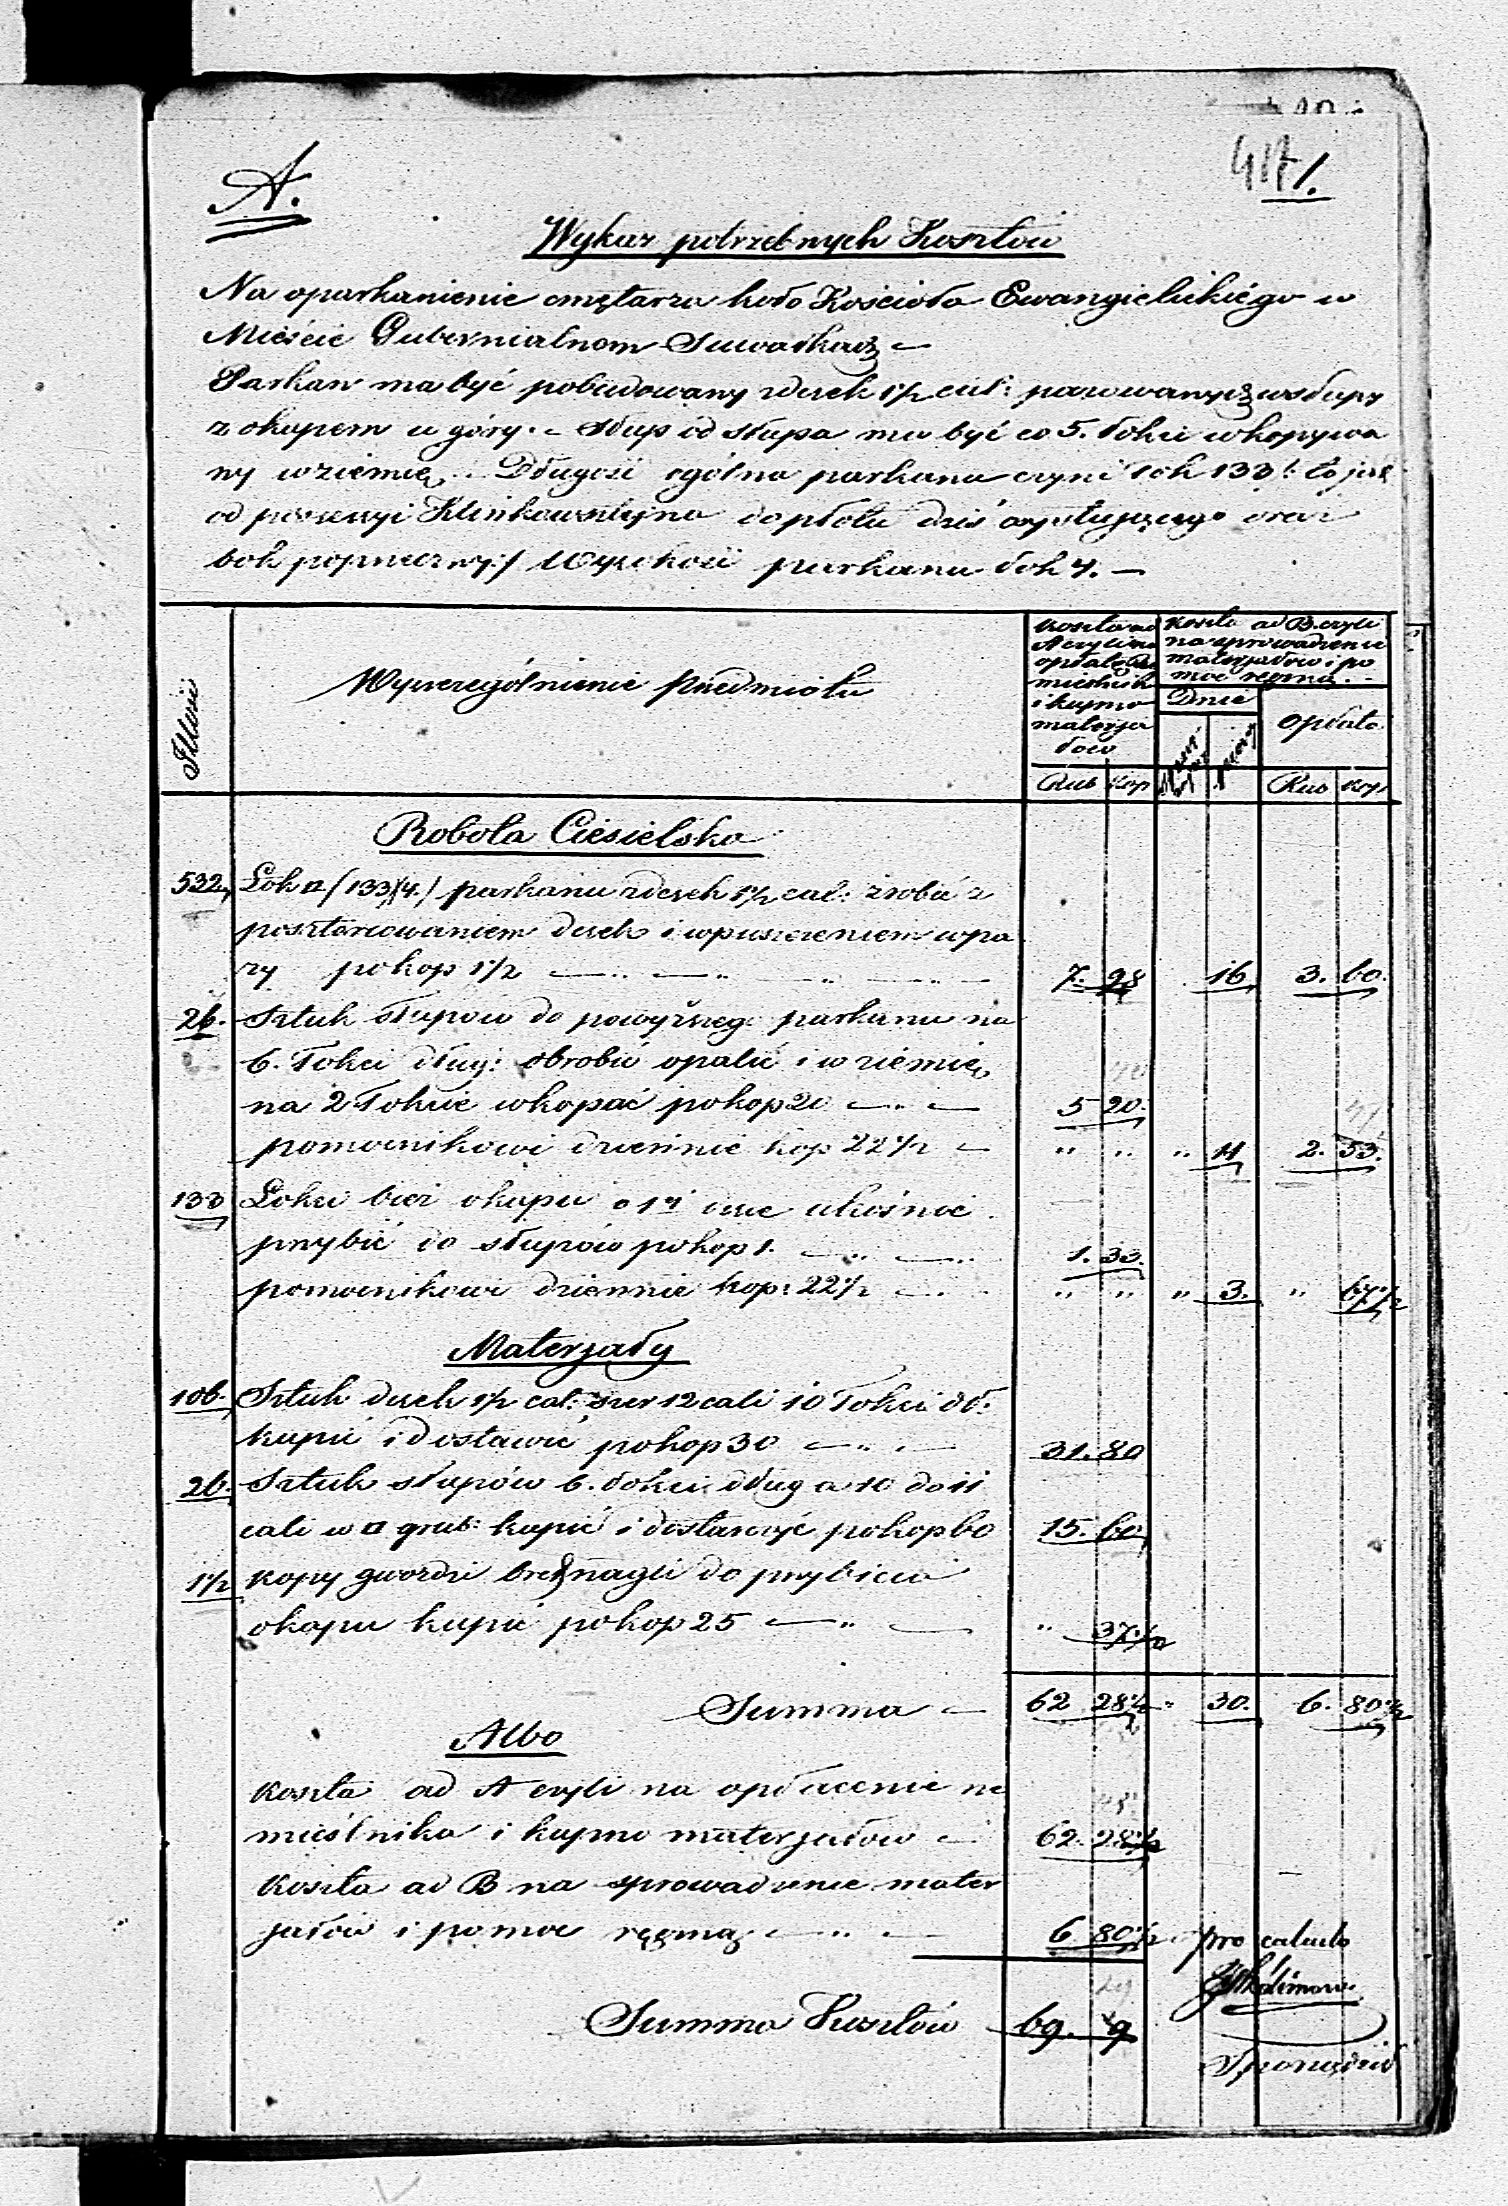 417/1.
A.
Wykaz potrzebnych Kosztów
Na oparkanienie cmętarza koło Kościoła Ewangielickiégo w
Mieście Gubernialnem Suwałkach –
Parkan ma być pobudowany zdesek 1½ cal: parowanych wsłupy
z okapem u góry. – Słup od słupa ma być co 5. łokci wkopywa
ny w ziemię. – Długość ogólna parkanu czyni łok 133 to jest
od possessyi Klinkowsztejna do płotu dziś oraz
bok poprzeczny / Wysokość parkanu łok 4. –
Illość
Wyszczególnienie przedmiotu
Koszta ad
A czyli na
opłatę Rze
mieślnik
i kupno
materja
łów
Koszta ad B. czyli
na sprowadzenie
materjałów i po
moc ręczną. –
Dnie
opłata
Rub kop
Rub kop
Robota Ciesielska
532, Łok □ /133)(4./ parkanu zdesek 1½ cal: zrobić z
posztorcowaniem desek i wpuszczeniem wpa
zy po kop 1½ 7. 98 16 3. 60.
26. Sztuk słupów do powyższeg: parkanu na
6. łokci dług: obrobić opalić i w ziemię
na 2 łokcie wkopać po kop 20 5 20.
pomocnikowi dziennie kop 22½ " " " 11 2. 53.
133 Łokci bież okapu o 1ej desce ukośnie
przybić do słupów po kop 1. 1. 33.
pomocnikowi dziennie kop: 22½ " " " 3. " 67½
Materjały
106. Sztuk desek 1½ cal: szer 12 cali 10 łokci dł:
kupić i dostawić po kop 30 31. 80
26. Sztuk słupów 6. łokci dług a 10 do 11
cali w □ grub: kupić i dostawić po kop 60 15. 60
1½ kopy gwoździ bretnagli do przybicia
okapu kupić po kop 25 " 37½
Summa – 62 28½ " 30. 6. 80½
Albo
Koszta ad A czyli na opłacenie rze
mieślnika i kupno materjałów – 62. 28½
Koszta ad B na sprowadzenie mater
jałów i pomoc ręczną 6 80½
pro calculo
Summa Kosztów 69. 9
Sporządził